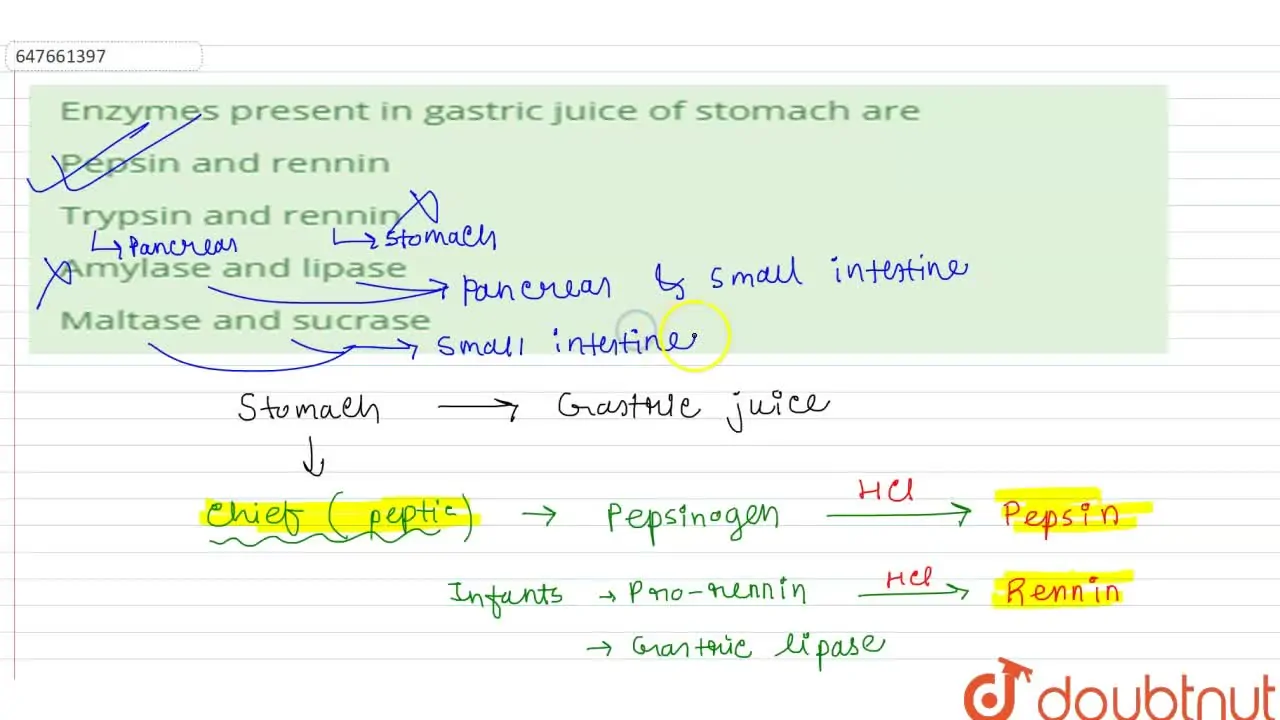 647661397
Enzymes present in gastric juice of stomach are
Pepsin and rennin
Trypsin and rennin
Pancreas Stomach
Amylase and lipase
Pancreas & Small intestine
Maltase and sucrase
Small intestine
Stomach → Gastric juice
↓
Chief (peptic) → Pepsinogen HCl → Pepsin
Infants → Pro-rennin HCl → Rennin
→ Gastric lipase
doubtnut